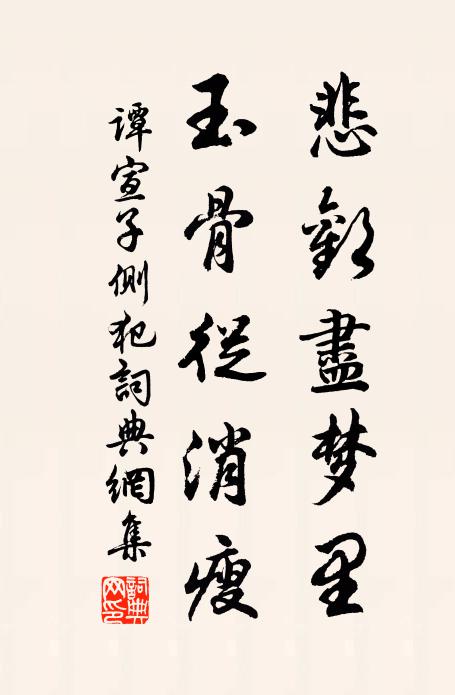 悲歡盡梦里
玉骨從消瘦
谭宣子側犯詞典網集
詞典网印